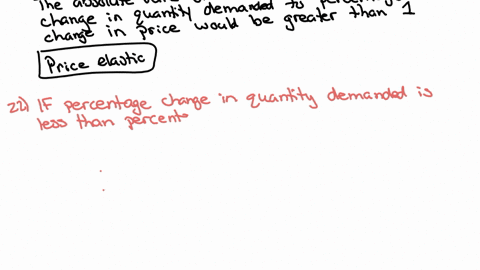 The absolute
change in quantity demanded to percentage
change in price would be greater than 1
Price elastic
22) IF percentage change in quantity demanded is
less than percent